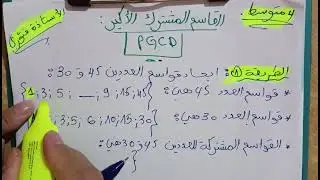 4 متوسط
القاسم المشترك الأكبر:
الأستاذة
PGCD
الطريقة ①: ايجاد قواسم العددين 45 و 30:
* قواسم العدد 45 هي:
{1;3;5; __;9;15;45}
* قواسم العدد 30 هي:
;3;5;6;10;15;30}
* القواسم المشتركة للعددين 45 و 30 هي:
}